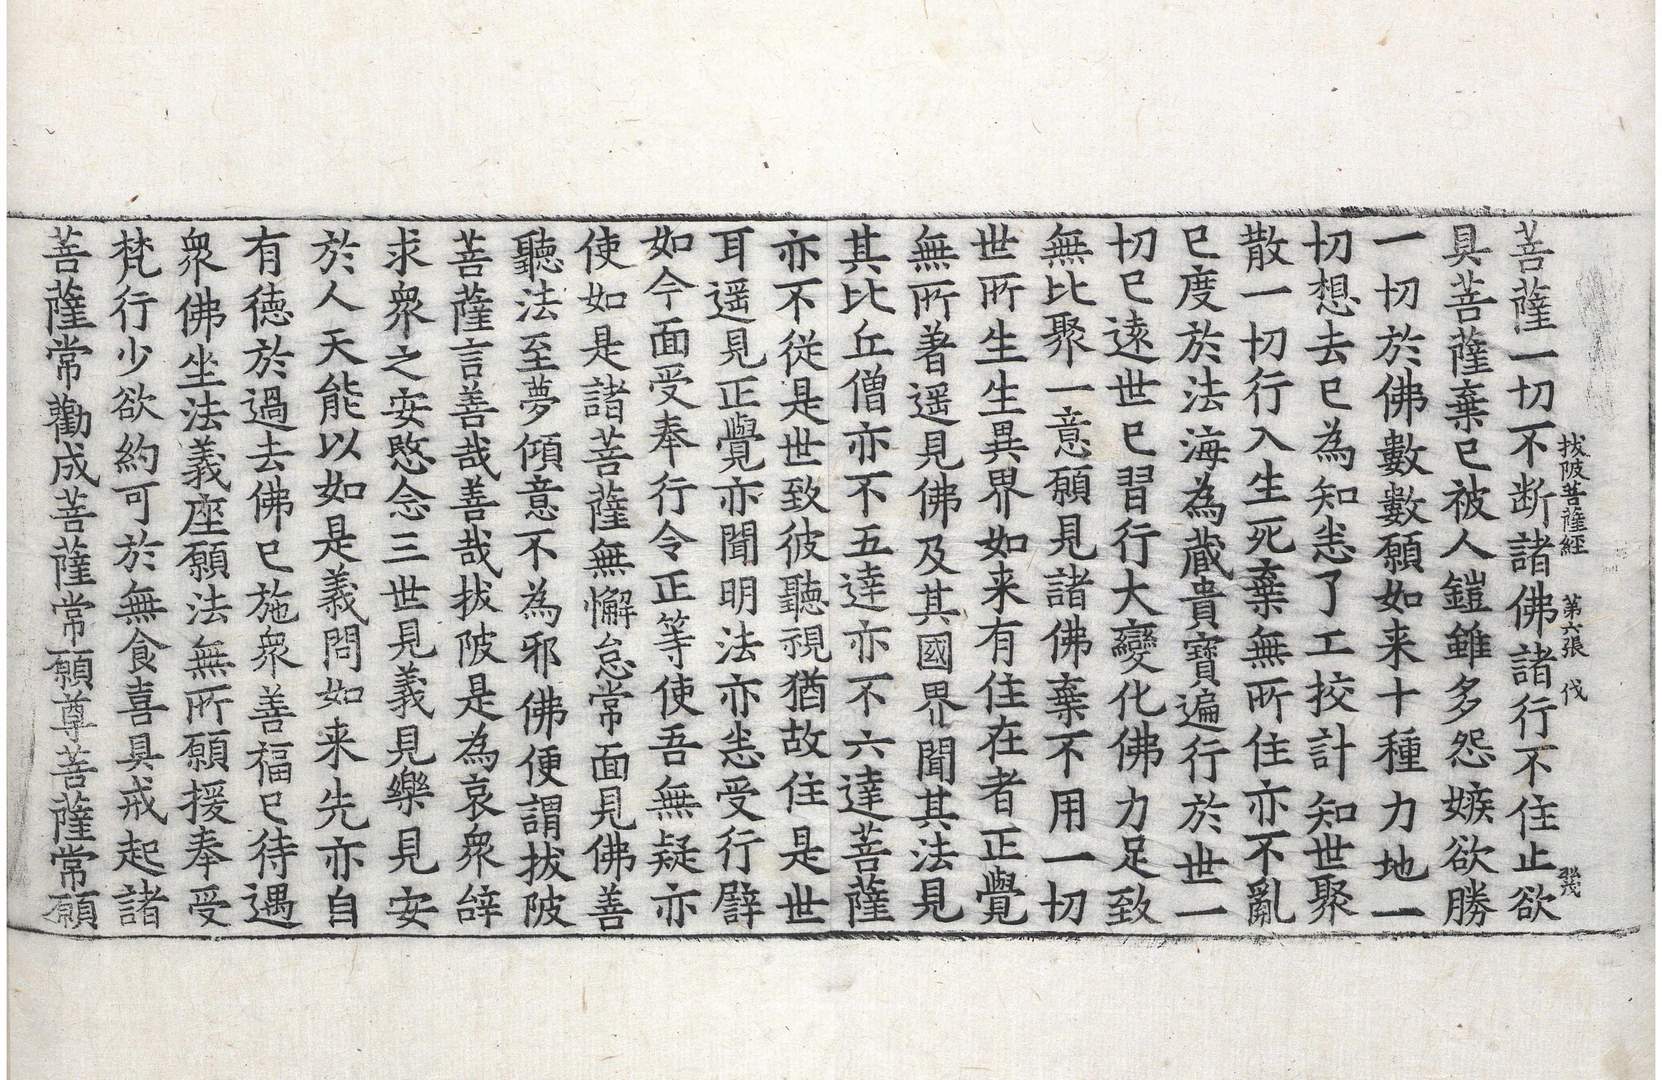 拔陂菩薩經　第六張　伐
菩薩一切不断諸佛諸行不住止欲
具菩薩棄已被人鎧雖多怨嫉欲勝
一切於佛數數願如来十種力地一
切想去已為知恚了工挍計知世聚
散一切行入生死棄無所住亦不亂
已度於法海為蔵貴寶遍行於世一
切已逺世已習行大變化佛力足致
無比聚一意願見諸佛棄不用一切
世所生生異界如来有住在者正覺
無所著遥見佛及其國界聞其法見
其比丘僧亦不五達亦不六達菩薩
亦不從是世致彼聽視猶故住是世
耳遥見正覺亦聞明法亦恚受行譬
如今面受奉行令正等使吾無疑亦
使如是諸菩薩無懈怠常面見佛善
聽法至夢傾意不為邪佛便謂拔陂
菩薩言善哉善哉拔陂是為哀衆辝
求衆之安愍念三世見義見樂見安
於人天能以如是義問如来先亦自
有徳於過去佛已施衆善福已待遇
衆佛坐法義座願法無所願援奉受
梵行少欲約可於無食喜具戒起諸
菩薩常勸成菩薩常願尊菩薩常願